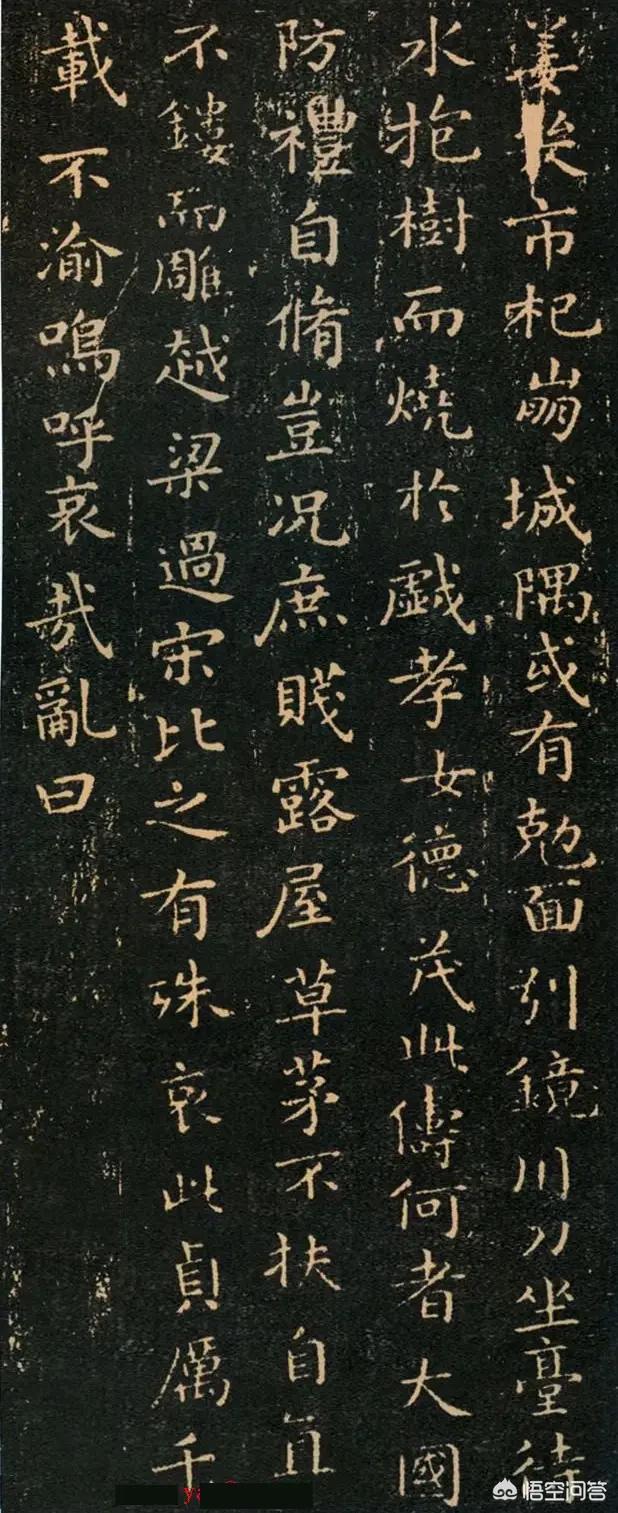 姜市杞崩城隅或有尅面引鏡川刀坐臺待
水抱樹而燒於戲孝女德茂此儔何者大國
防禮自脩豈况庶賤露屋草茅不扶自直
不鏤而雕越梁過宋比之有殊哀此貞厲千
載不渝嗚呼哀哉亂曰
悟空问答